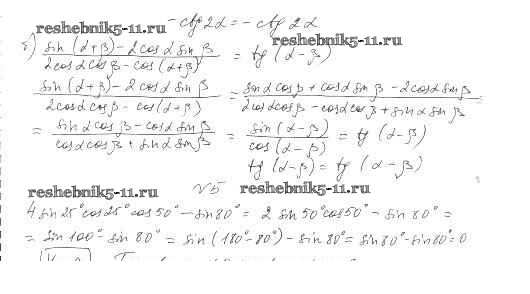 - ctg 2α = - ctg 2α
reshebnik5-11.ru
reshebnik5-11.ru
б) (sin (α+β) - 2cosα sin β) / (2cosα cosβ - cos (α+β)) = tg (α-β)
(sin (α+β) - 2cosα sin β) / (2cosα cosβ - cos (α+β)) = (sinα cosβ + cosα sinβ - 2cosα sinβ) / (2cosα cosβ - cosα cosβ + sinα sinβ) =
= (sinα cosβ - cosα sinβ) / (cosα cosβ + sinα sinβ) = sin(α-β) / cos(α-β) = tg (α-β)
tg (α-β) = tg (α-β)
reshebnik5-11.ru
№5
reshebnik5-11.ru
4 sin 25° cos 25° cos 50° - sin 80° = 2 sin 50° cos 50° - sin 80° =
= sin 100° - sin 80° = sin (180° - 80°) - sin 80° = sin 80° - sin 80° = 0